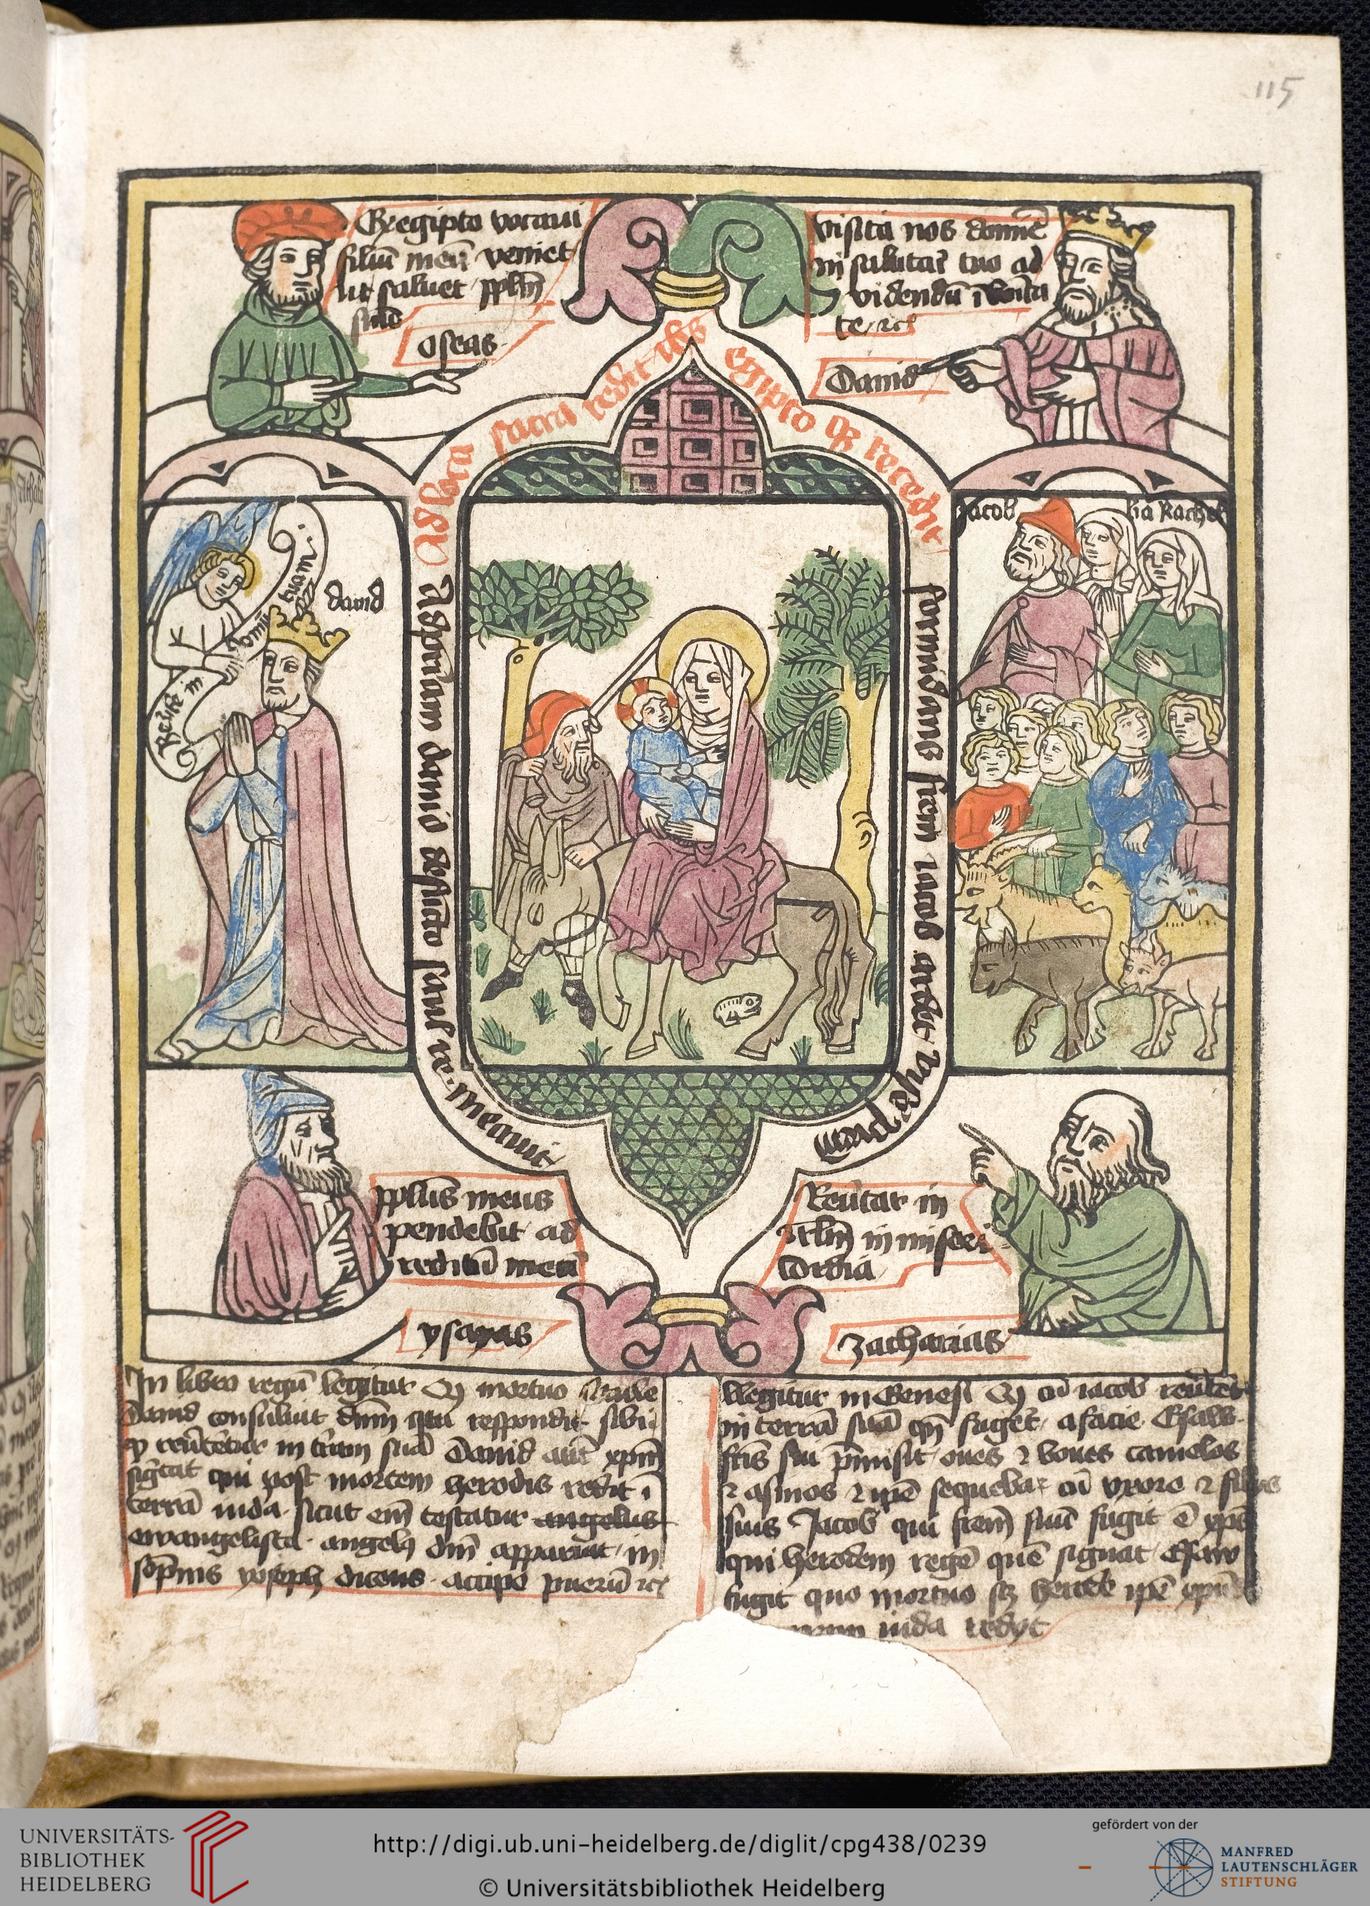 115
Ex egipto vocavi
filiũ meũ veniet
ut saluet pplm̃
suũ
Oseas
visita nos domie
in salutar̃ tuo ad
videndũ ĩ bonita
te
David
Ad loca sacra redit ihs egipto qz recedit
david
Jacob
lia Rachel
Ad patriam david defũcto saul re meavit
formidans frem̃ iacob ardet
pplus̃ meus
pendebit ad
reditũ meũ
ysayas
Reũtar in
ihrlm̃ in miseri
cordia
zacharias
In libro regũ legitur qz mortuo saule
david consuluit dñm qui respondit sibi
qz reũtetur in t̃ram suã David aũt xpm̃
sig̃cat qui post mortem herodis redit ĩ
terrã iuda sicut em̃ testatur angelus
ewangelista angelus dñi apparuit in
sõpnis yoseph dicens accipe puerũ
Legitur in Genesi qz cũ iacob
in terrã suã q̃ fuget̃ a facie Esaw
fr̃is sui p̃misit oves et boves camelos
et asinos et ipẽ sequebar cũ vxore et filiis
suis Jacob qui frem̃ suũ fugit ẽ xpc̃
qui herodem regẽ quẽ signat Esaw
fugit quo mortuo herode ipẽ
iuda redyt
UNIVERSITÄTS-
BIBLIOTHEK
HEIDELBERG
http://digi.ub.uni-heidelberg.de/diglit/cpg438/0239
© Universitätsbibliothek Heidelberg
gefördert von der
MANFRED
LAUTENSCHLÄGER
STIFTUNG